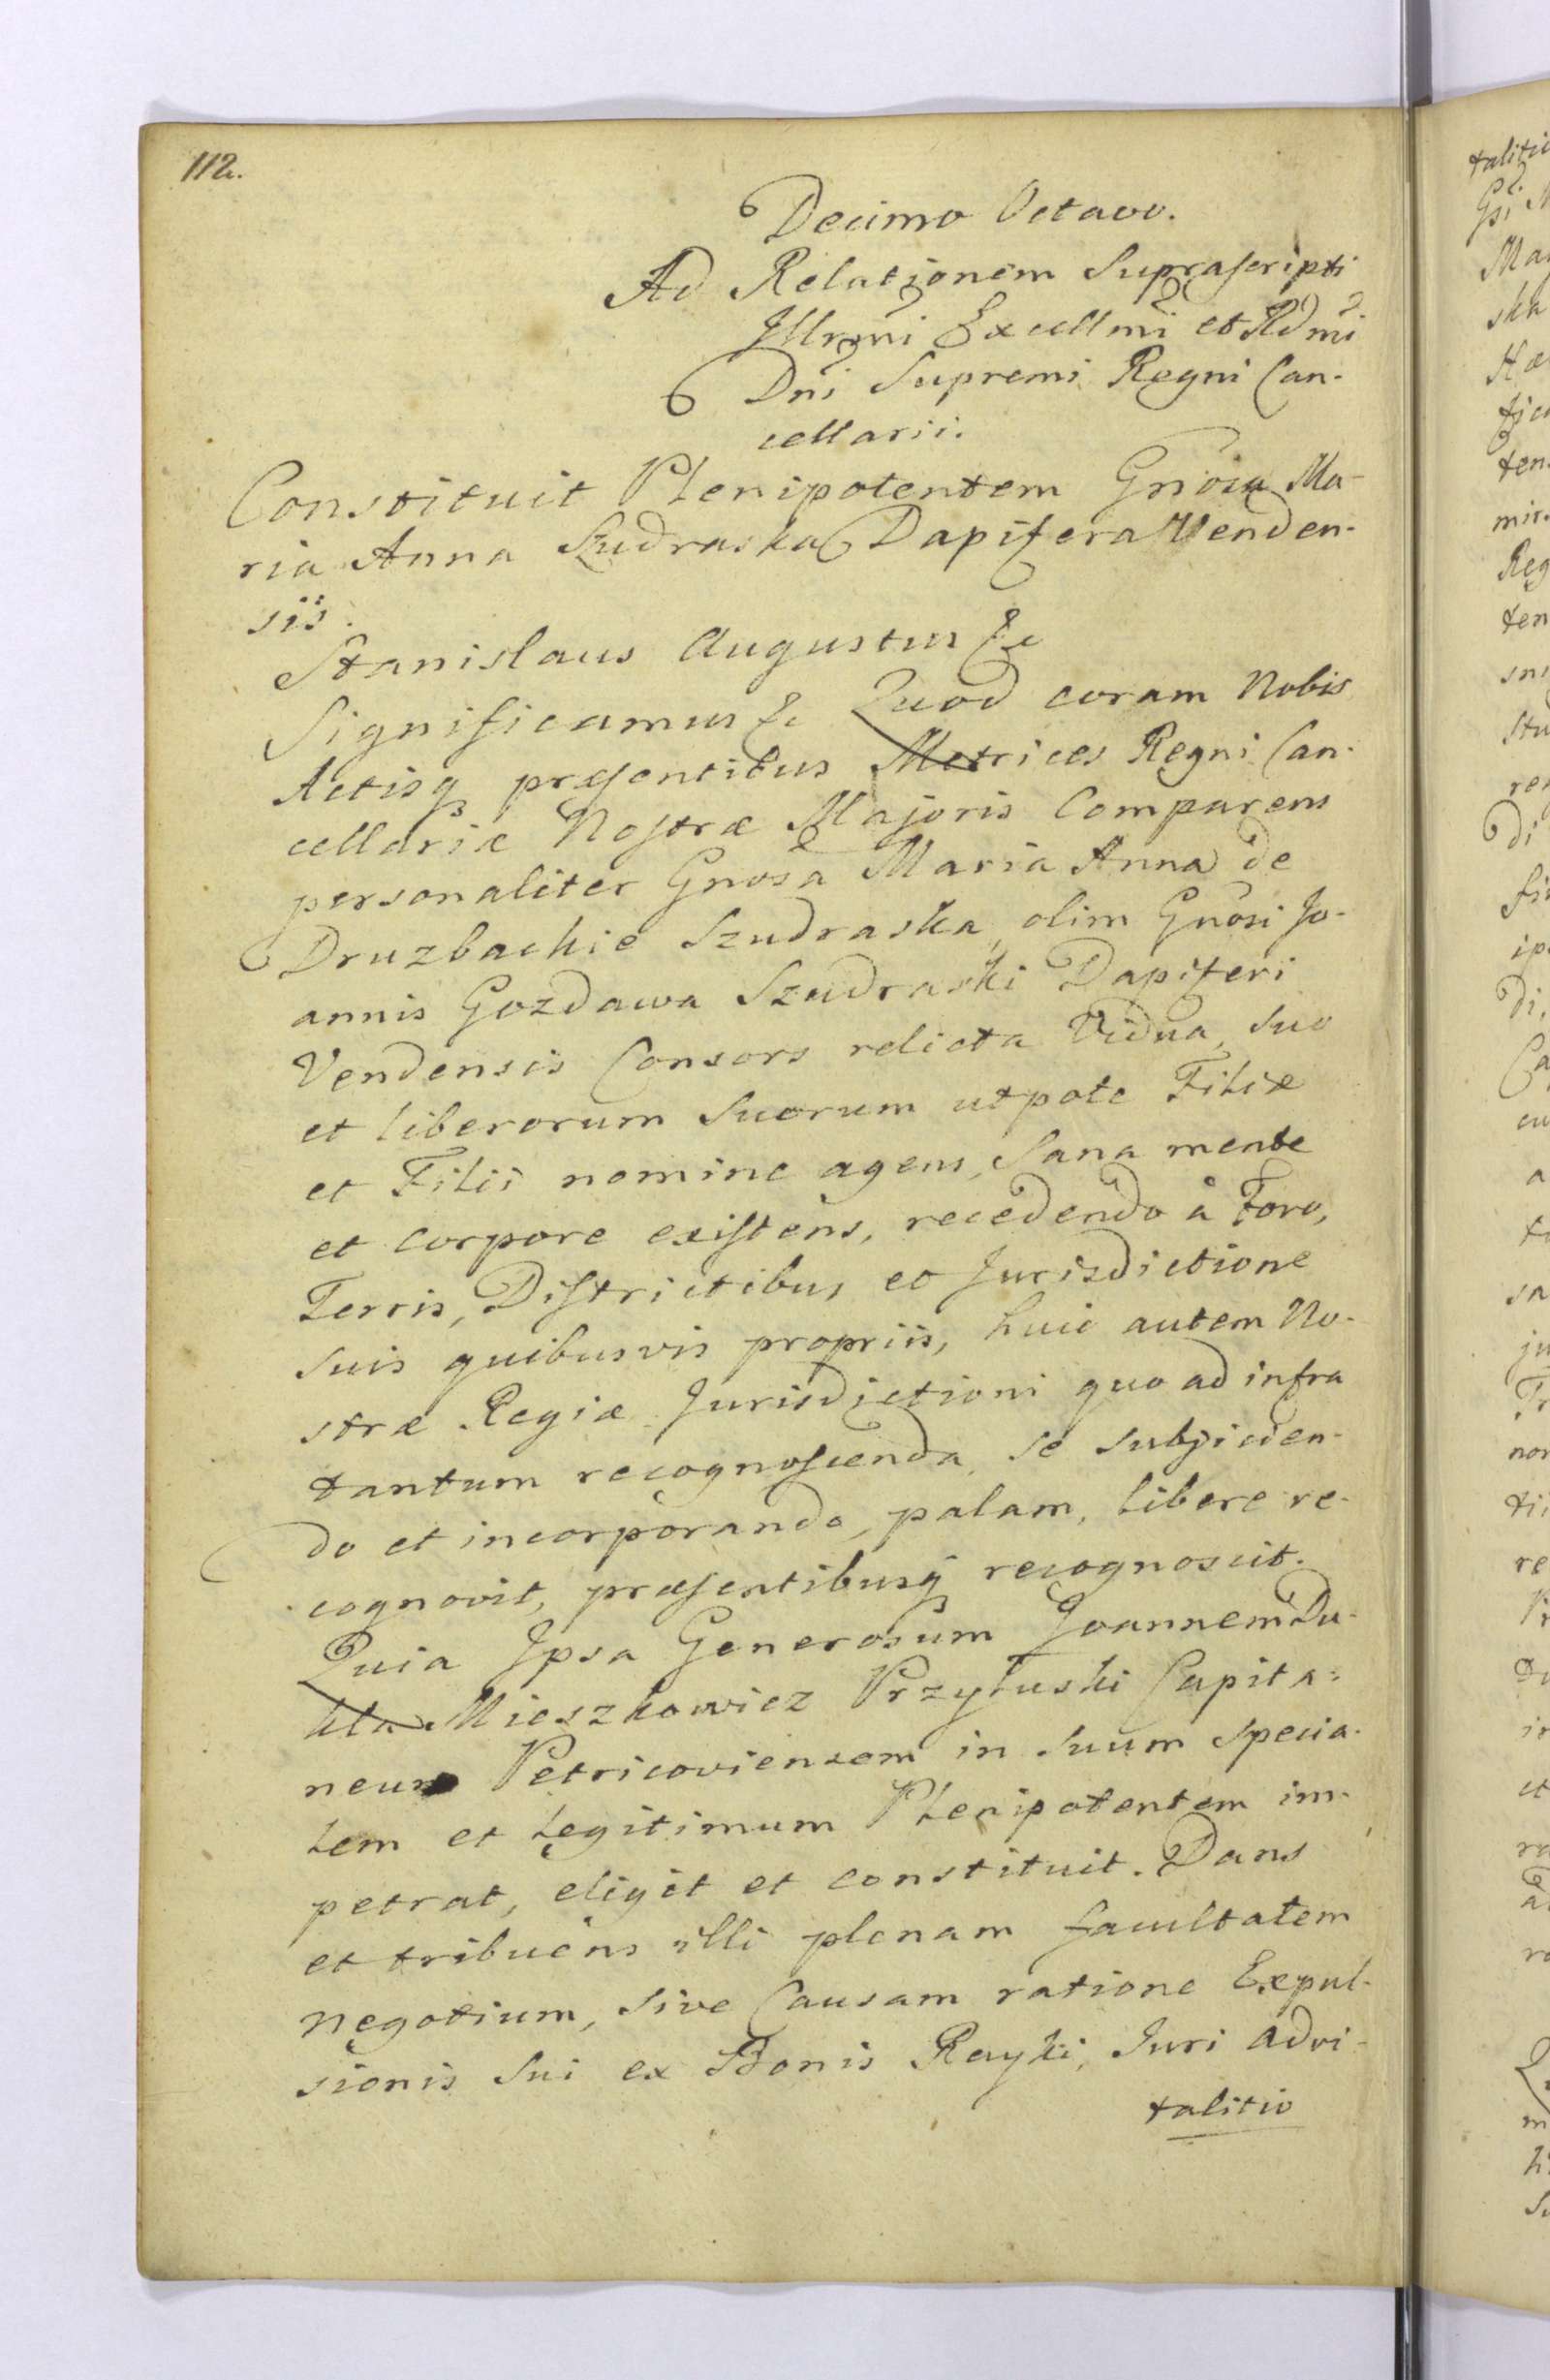 112.
Decimo Octavo.
Ad Relationem Suprascripti
Jllrmi Excellmi et Rdmi
Dni Supremi Regni Can-
cellarii.
Constituit Plenipotentem Gnosa Ma-
ria Anna Szudraska Dapifera Venden-
sis.
Stanislaus Augustus &c
Significamus &c Quod coram Nobis
Actisq præsentibus Metrices Regni Can-
cellariæ Nostræ Majoris Comparens
personaliter Gnosa Maria Anna de
Druzbackie Szudraska, olim Gnosi Jo-
annis Gozdawa Szudraski Dapiferi
Vendensis Consors relicta Vidua, suo
et liberorum suorum utpote Filiæ
et Filii nomine agens, sana mente
et corpore existens, recedendo à Foro,
Terris, Districtibus et Jurisdictione
suis quibusvis propriis, huic autem No-
stræ Regiæ Jurisdictioni quo ad infra
tantum recognoscenda se subjicien-
do et incorporando, palam, libere re-
cognovit, præsentibusq recognoscit.
Quia Ipsa Generosum Joannem Du-
kla Mieszkowicz Przyłuski Capita-
neum Petricoviensem in suum specia-
lem et legitimum Plenipotentem im-
petrat, eligit et constituit. Dans
et tribuens illi plenam facultatem
negotium, sive Causam ratione Expul-
sionis sui ex Bonis Rayki, Juri advi-
talitio